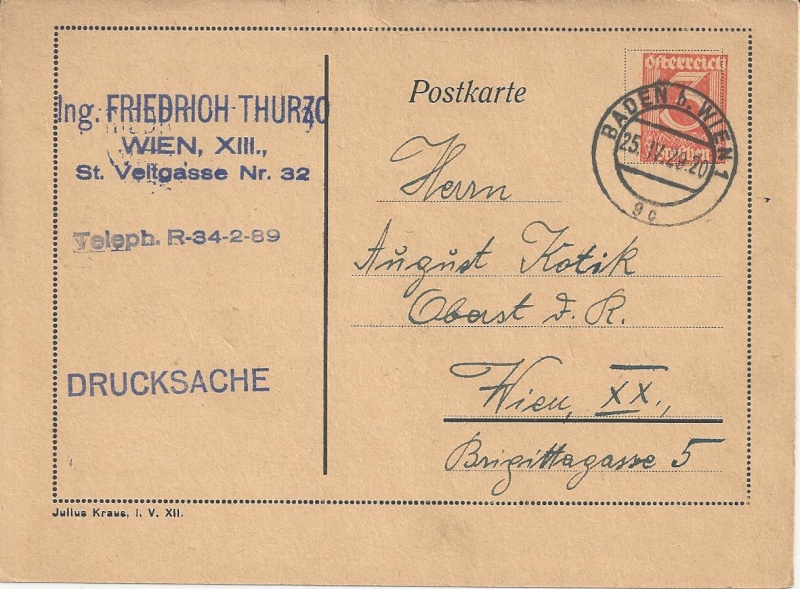 Ing. FRIEDRICH THURZO
WIEN, XIII.,
St. Veitgasse Nr. 32
Teleph. R-34-2-89
DRUCKSACHE
Julius Kraus, I. V. XII.
Postkarte
österreich
3
Groschen
BADEN b. WIEN 1
25. IV. 29. 20
9c
Herrn
August Kotik
Oberst d. R.
Wien, XX.,
Brigittagasse 5